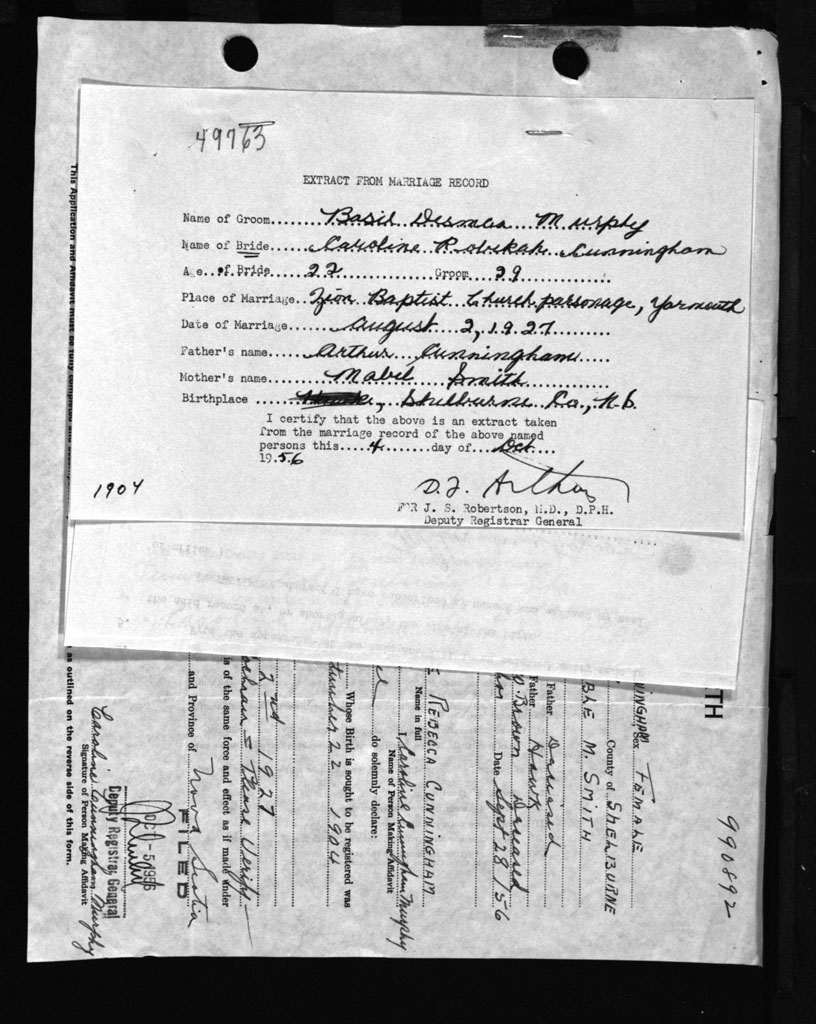 49763
EXTRACT FROM MARRIAGE RECORD
Name of Groom.......Basil Desmon Murphy
Name of Bride.......Caroline Rebekah Cunningham
Age of Bride.......22..............Groom...29..............
Place of Marriage..Zion Baptist Church parsonage, Yarmouth
Date of Marriage.......August 2, 1927..........
Father's name.......Arthur Cunningham.....
Mother's name.........Mabel Smith..............
Birthplace ......, Shelburne Co., N.S.
I certify that the above is an extract taken
from the marriage record of the above named
persons this....4.......day of...Oct....
1956
D.F. Arthur
FOR J. S. Robertson, M.D., D.P.H.
Deputy Registrar General
1904
This Application and Affidavit must be fully completed and
TH
990892
NINGHAM Sex FEMALE
County of SHELBURNE
BLE M. SMITH
Father Deceased
Father Hawk
D. Brown Deceased
Date Sept 28 '56
REBECCA CUNNINGHAM
Name in full
I Caroline Cunningham Murphy
Name of Person Making Affidavit
do solemnly declare:
Whose Birth is sought to be registered was
tember 22 1904
2nd 1927
is of the same force and effect as if made under
and Province of Nova Scotia
FILED
OCT - 5 1956
Deputy Registrar General
Caroline Cunningham Murphy
Signature of Person Making Affidavit
as outlined on the reverse side of this form.